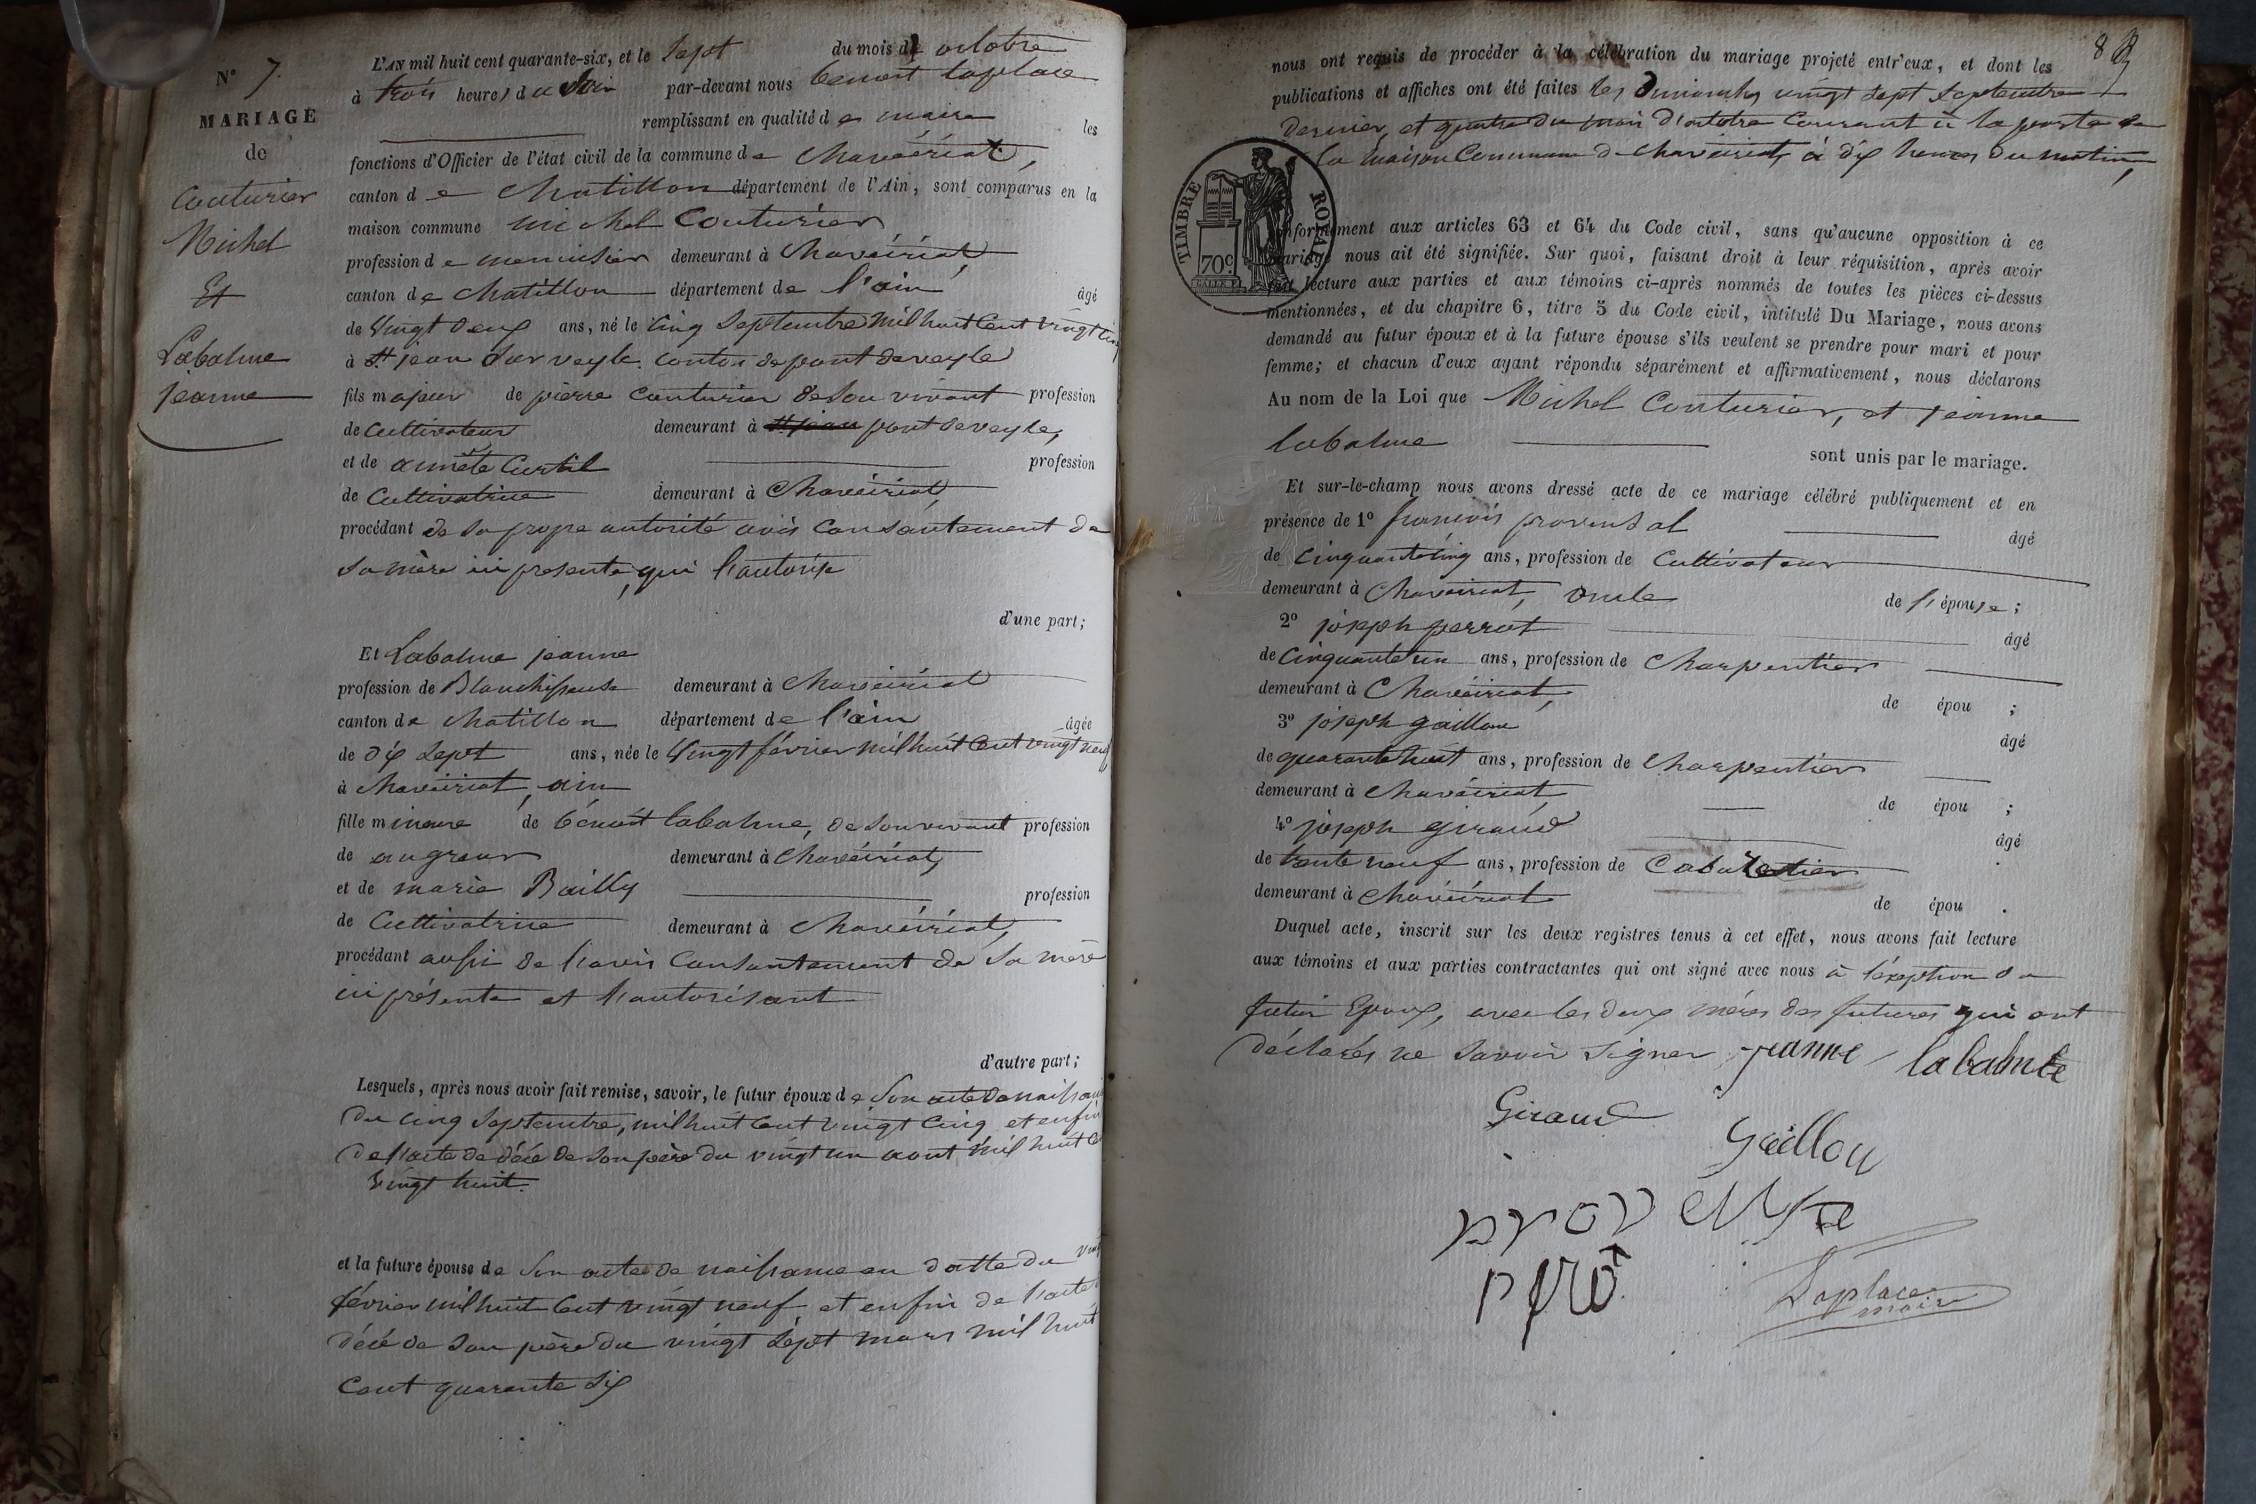 N° 7
MARIAGE
de
Couturier
Michel
Et
Labalme
jeanne
L'AN mil huit cent quarante-six, et le sept du mois de octobre
à trois heures du soir par-devant nous benoit laplace
remplissant en qualité de maire les
fonctions d'Officier de l'état civil de la commune de chavéiriat,
canton de chatillon département de l'Ain, sont comparus en la
maison commune michel Couturier
profession de menuisier demeurant à chavéiriat
canton de chatillon département de l'ain âgé
de vingt deux ans, né le cinq septembre mil huit cent vingt cinq
à st jean sur veyle canton de pont de veyle
fils majeur de pierre couturier de son vivant profession
de cultivateur demeurant à st jean pont de veyle,
et de annéte Curtil profession
de Cultivatrice demeurant à chavéiriat
procédant de sa propre autorité avis consentement de
sa mère ici presente, qui l'autorise
d'une part;
Et Labalme jeanne
profession de Blanchisseuse demeurant à chavéiriat
canton de chatillon département de l'ain âgée
de dix sept ans, née le vingt février mil huit cent vingt neuf
à chavéiriat, ain
fille mineure de bénoit labalme, de son vivant profession
de demeurant à chavéiriat,
et de marie Bailly profession
de Cultivatrice demeurant à chavéiriat,
procédant aussi de l'avis consantement de sa mère
ici présente et l'autorisant
d'autre part;
Lesquels, après nous avoir fait remise, savoir, le futur époux de son acte de naissance
du cinq septembre, mil huit cent vingt cinq et enfin
de l'acte de décé de son père du vingt un aout mil huit c
vingt huit.
et la future épouse de son acte de naissance en datte du vingt
février mil huit cent vingt neuf et enfin de l'acte
décé de son père du vingt sept mars mil huit
cent quarante six
8
nous ont requis de procéder à la célébration du mariage projeté entr'eux, et dont les
publications et affiches ont été faites les dimanches vingt sept septembre
dernier, et quatre du mois d'octobre courant à la porte de
la maison Commune de chavéiriat, à dix heures du matin,
TIMBRE ROYAL
70c
conformément aux articles 63 et 64 du Code civil, sans qu'aucune opposition à ce
mariage nous ait été signifiée. Sur quoi, faisant droit à leur réquisition, après avoir
fait lecture aux parties et aux témoins ci-après nommés de toutes les pièces ci-dessus
mentionnées, et du chapitre 6, titre 5 du Code civil, intitulé Du Mariage, nous avons
demandé au futur époux et à la future épouse s'ils veulent se prendre pour mari et pour
femme; et chacun d'eux ayant répondu séparément et affirmativement, nous déclarons
Au nom de la Loi que Michel Couturier, et jeanne
labalme sont unis par le mariage.
Et sur-le-champ nous avons dressé acte de ce mariage célébré publiquement et en
présence de 1° francois provensal âgé
de cinquante cinq ans, profession de Cultivateur
demeurant à Chavéiriat, oncle de l'épouse;
2° joseph perrat âgé
de cinquante un ans, profession de charpentier
demeurant à Chavéiriat, de épou ;
3° joseph gaillou âgé
de quarante huit ans, profession de charpentier
demeurant à chavéiriat de épou ;
4° joseph giraud âgé
de trente neuf ans, profession de Cabaretier
demeurant à chavéiriat de épou .
Duquel acte, inscrit sur les deux registres tenus à cet effet, nous avons fait lecture
aux témoins et aux parties contractantes qui ont signé avec nous à l'éxeption du
futur Epoux, avec les deux mères des futures qui ont
déclarés ne savoir signer jeanne labalme
Giraud
Gaillou
Laplace
maire